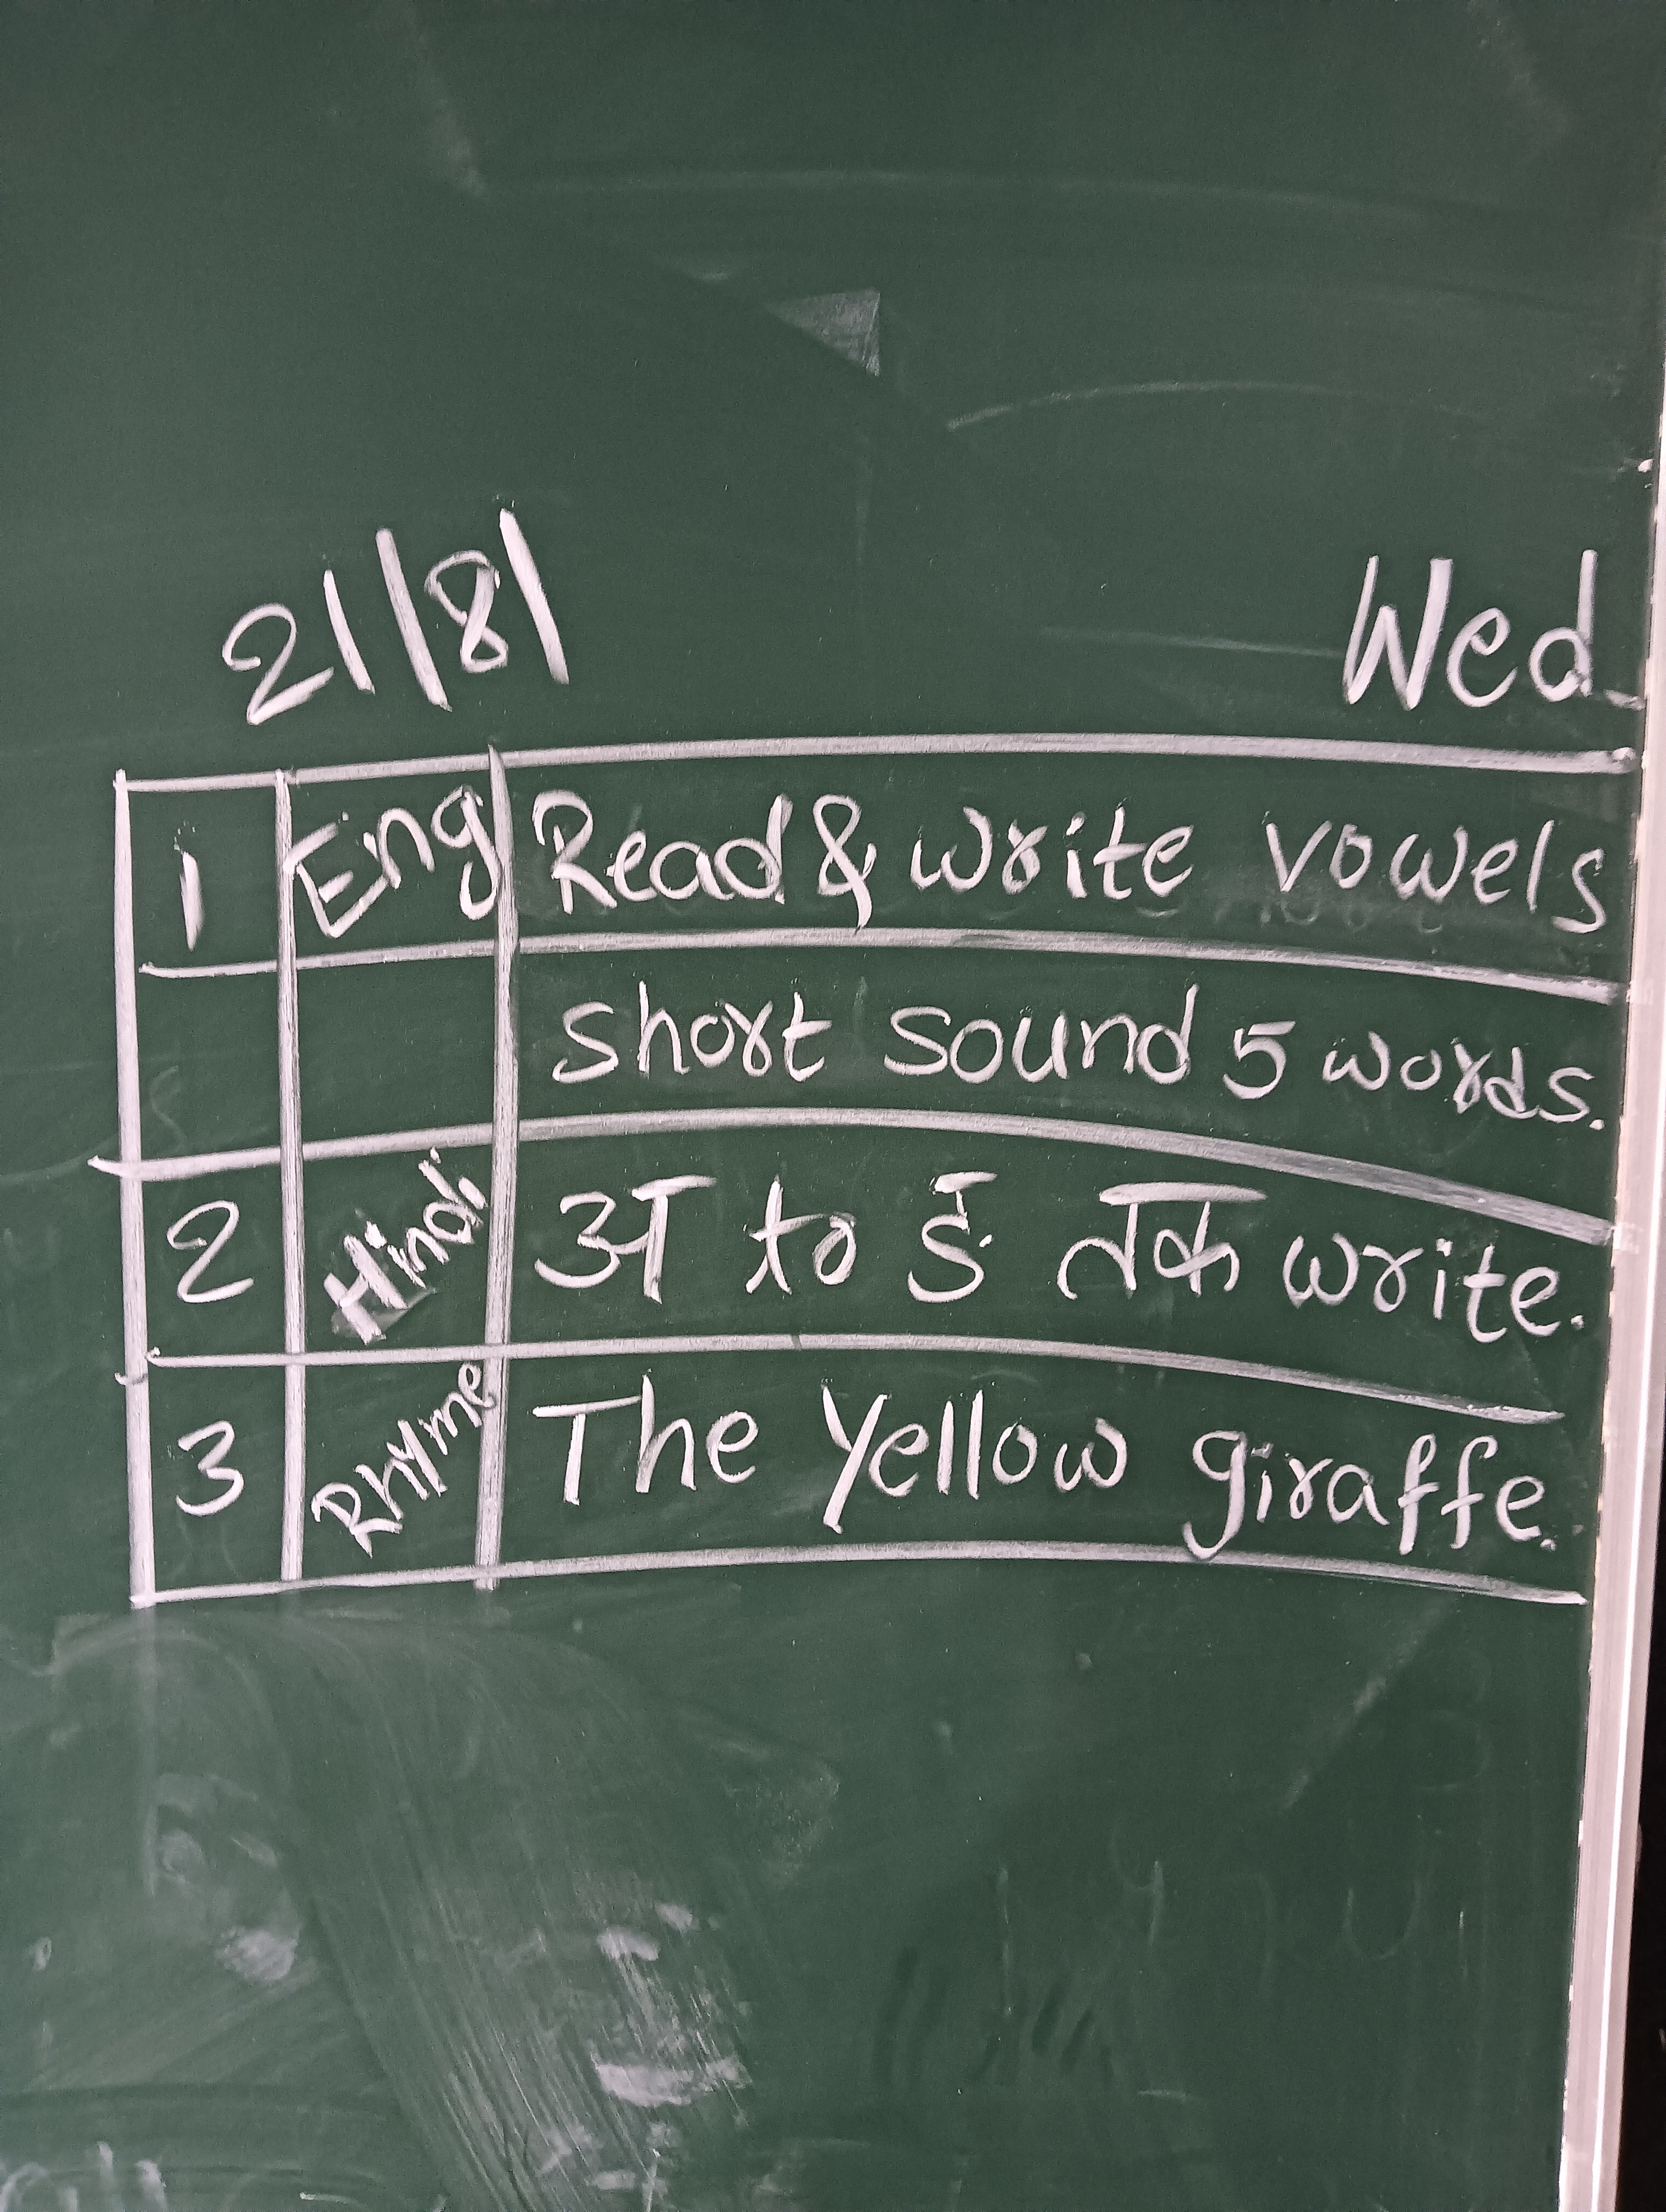 21/8/ Wed
1 Eng Read & write vowels
short sound 5 words.
2 Hindi अ to ङ तक write.
3 Rhyme The Yellow giraffe.